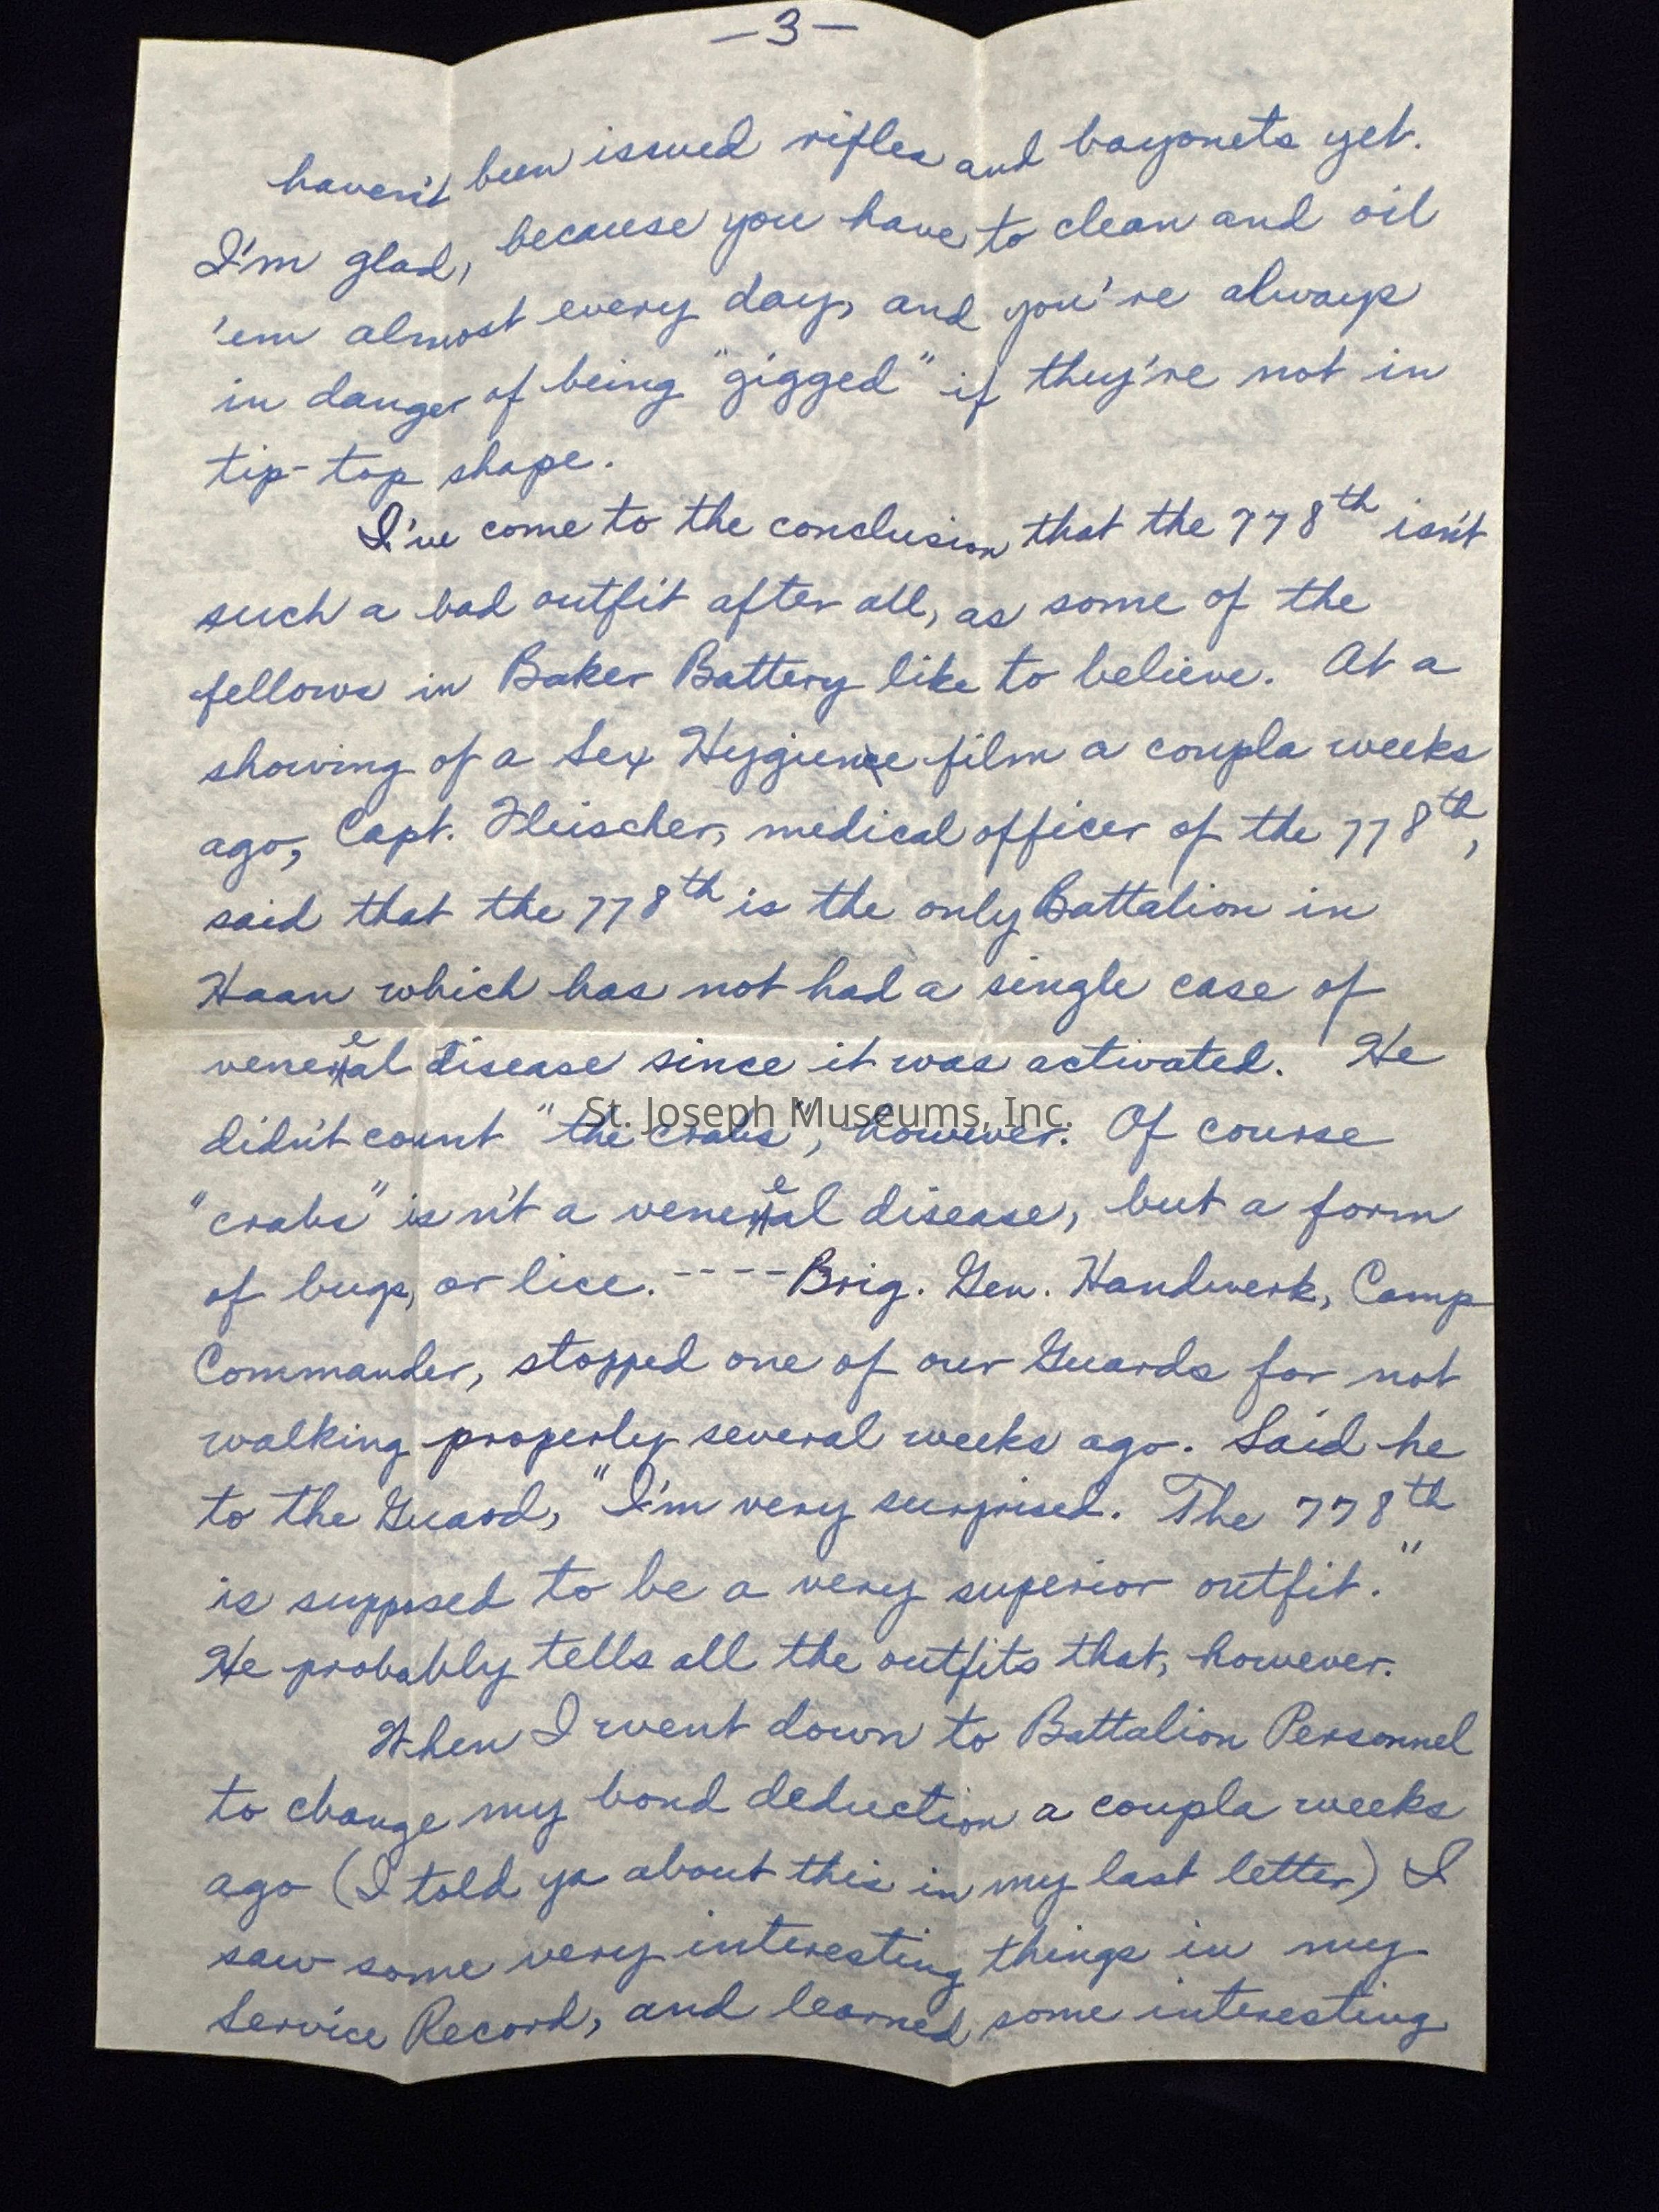 -3-
haven't been issued rifles and bayonets yet.
I'm glad, because you have to clean and oil
'em almost every day, and you're always
in danger of being "gigged" if they're not in
tip-top shape.
I've come to the conclusion that the 778th isn't
such a bad outfit after all, as some of the
fellows in Baker Battery like to believe. At a
showing of a Sex Hygiene film a coupla weeks
ago, Capt. Fleischer, medical officer of the 778th,
said that the 778th is the only Battalion in
Haan which has not had a single case of
venereal disease since it was activated. He
St. Joseph Museums, Inc.
didn't count "the crabs", however. Of course
"crabs" isn't a venereal disease, but a form
of bugs, or lice. ---- Brig. Gen. Handwerk, Camp
Commander, stopped one of our Guards for not
walking properly several weeks ago. Said he
to the Guard, "I'm very surprised. The 778th
is supposed to be a very superior outfit."
He probably tells all the outfits that, however.
When I went down to Battalion Personnel
to change my bond deduction a coupla weeks
ago (I told ya about this in my last letter) I
saw some very interesting things in my
Service Record, and learned some interesting